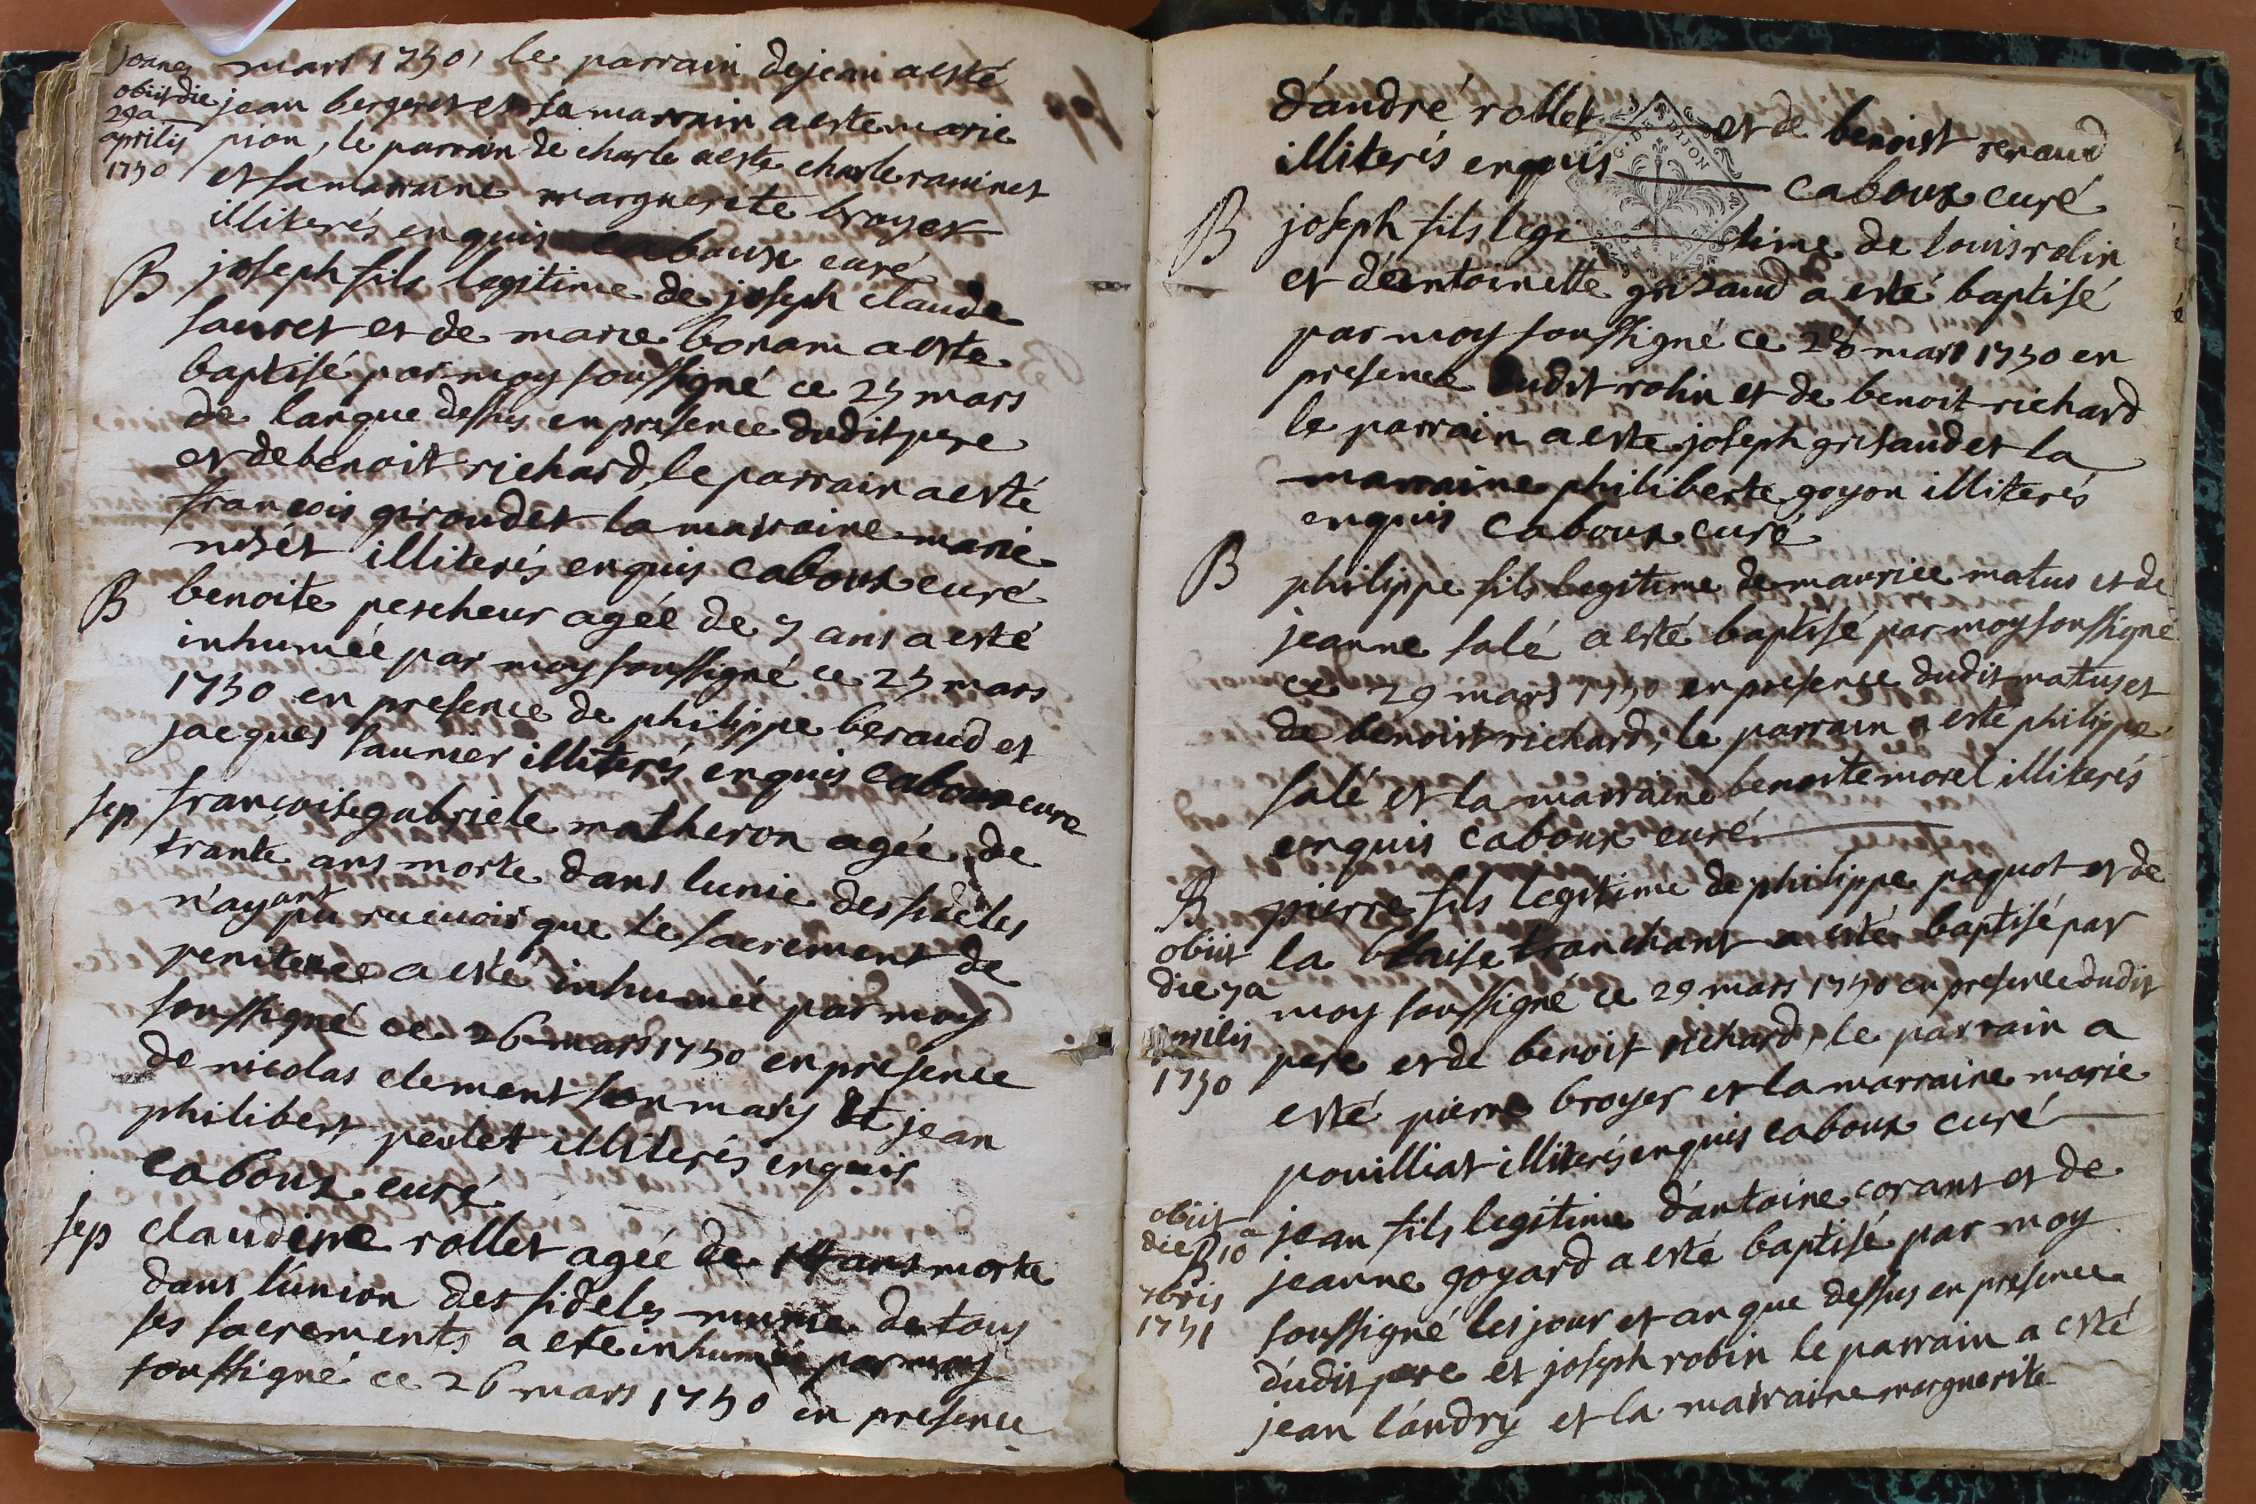 Joanes
obiit die
29a
aprilis
1750
mars 1750, le parrain de jean a esté
jean bergeret et sa marrain a este marie
pion, le parrain de charle a este charle raminet
et sa marraine marguerite broyer
illiterés enquis caboux curé
B
joseph fils legitime de joseph claude
sauret et de marie bonam a este
baptisé par moy soussigné ce 25 mars
de lanque dessus en presence dudit pere
et de benoit richard, le parrain a esté
francois giroud et la marraine marie
illiterés enquis caboux curé
B
benoite pescheur agée de 7 ans a esté
inhumée par moy soussigné ce 25 mars
1750 en presence de philippe beraud et
jacques saunier illiterés enquis caboux cure
sep
françoise gabriele matheron agée de
trante ans morte dans lunie des fideles
n'ayant
pu recuoir que le sacrement de
penitence a esté inhumée par moy
soussigné ce 26 mars 1750 en presence
de nicolas clement son mary et jean
philibert peulet illiterés enquis
caboux curé
sep
claudine rollet agée de 14 ans morte
dans l'union des fideles munie de tous
ses sacrements a ete inhumée par moy
soussigné ce 26 mars 1750 en presence
d'andré rollet et de benoist renaud
illiterés enquis caboux curé
G. DE DIJON
B
joseph fils legitime de louis rolin
et d'entoinette grisaud a esté baptisé
par moy soussigné ce 28 mars 1750 en
presence dudit rolin et de benoit richard
le parrain a este joseph grisaud et la
marraine philiberte goyon illiterés
enquis caboux curé
B
philippe fils legitime de maurice matus et de
jeanne salé a esté baptisé par moy soussigné
ce 29 mars 1750 en presence dudit matus et
de benoist richard, le parrain a esté philippe
salé et la marraine benoite morel illiterés
enquis caboux curé
B
obiit
die 7a
aprilis
1750
pierre fils legitime de philippe paquot et de
la blaise tranchant a esté baptisé par
moy soussigné ce 29 mars 1750 en presence dudit
pere et de benoit richard, le parrain a
esté pierre broyer et la marraine marie
pouilliat illiterés enquis caboux curé
obiit
die 10a
B
1751
jean fils legitime d'antoine corant et de
jeanne goyard a esté baptisé par moy
soussigné les jour et an que dessus en presence
dudit pere et joseph robin le parrain a esté
jean l'andry et la marraine marguerite